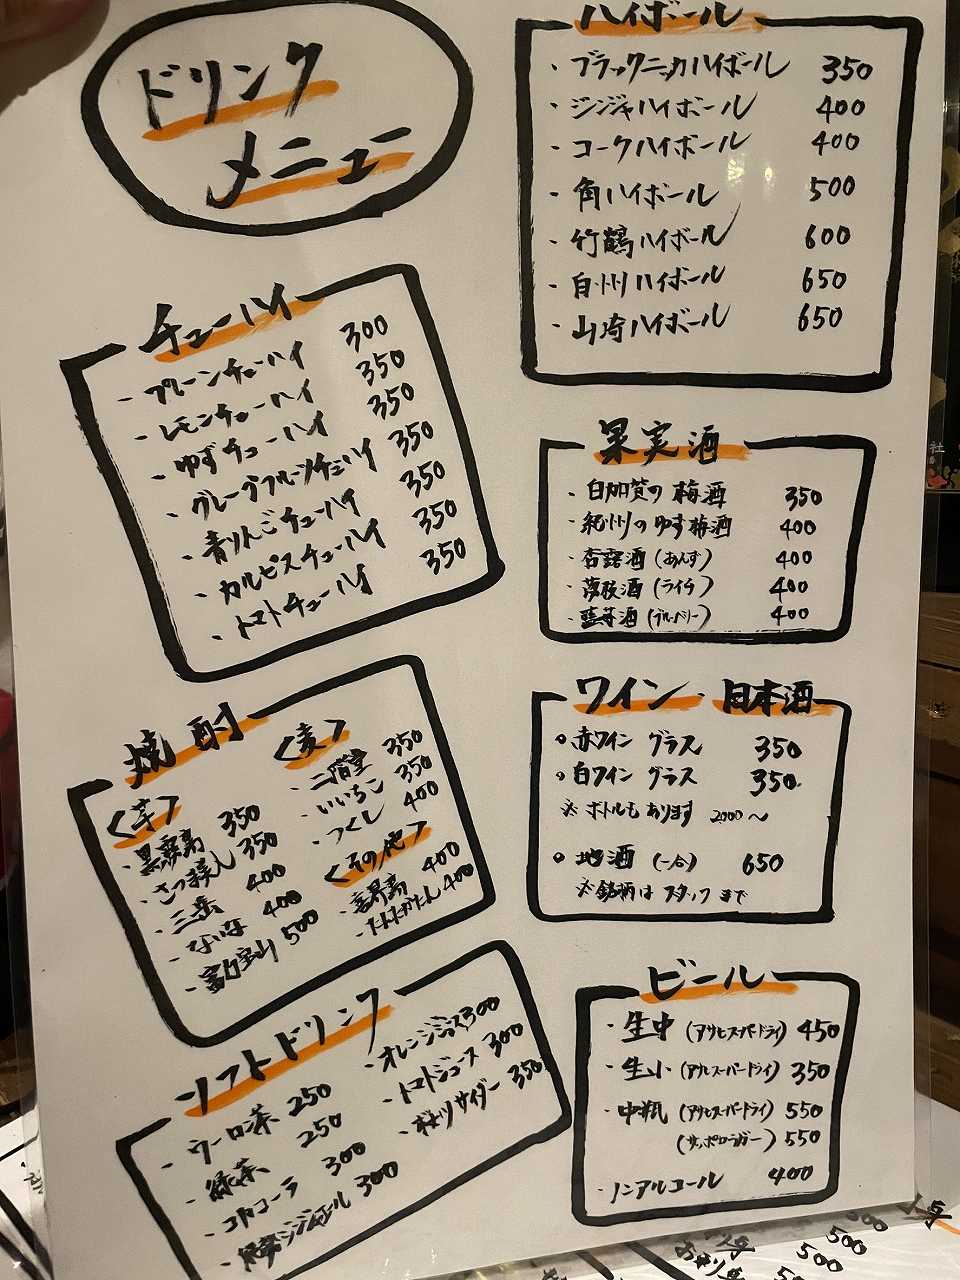 ドリンク
メニュー
ハイボール
・ブラックニッカハイボール 350
・ジンジャハイボール 400
・コークハイボール 400
・角ハイボール 500
・竹鶴ハイボール 600
・白州ハイボール 650
・山崎ハイボール 650
チューハイ
・プレーンチューハイ 300
・レモンチューハイ 350
・ゆずチューハイ 350
・グレープフルーツチューハイ 350
・青りんごチューハイ 350
・カルピスチューハイ 350
・トマトチューハイ 350
果実酒
・白加賀の梅酒 350
・紀州のゆず梅酒 400
・杏露酒(あんず) 400
・茘枝酒(ライチ) 400
・藍苺酒(ブルーベリー) 400
焼酎
<芋>
・黒霧島 350
・さつま美人 350
・三岳 400
・ないな 400
・富乃宝山 500
<麦>
・二階堂 350
・いいちこ 350
・つくし 400
<その他>
・喜界島 400
・たんたかたん 400
ワイン 日本酒
○赤ワイン グラス 350
○白ワイン グラス 350
※ボトルもあります 2000〜
○地酒 (一合) 650
※銘柄はスタッフまで
ソフトドリンク
・ウーロン茶 250
・緑茶 250
・コカコーラ 300
・ジンジャエール 300
・オレンジジュース 300
・トマトジュース 300
・桜川サイダー 350
ビール
・生中 (アサヒスーパードライ) 450
・生小 (アサヒスーパードライ) 350
・中瓶 (アサヒスーパードライ) 550
(サッポロラガー) 550
・ノンアルコール 400
500
500